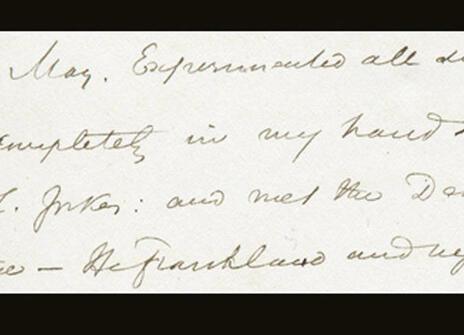 May. Experimented all d
completely in my hand
: and met the De
— He Frankland and my